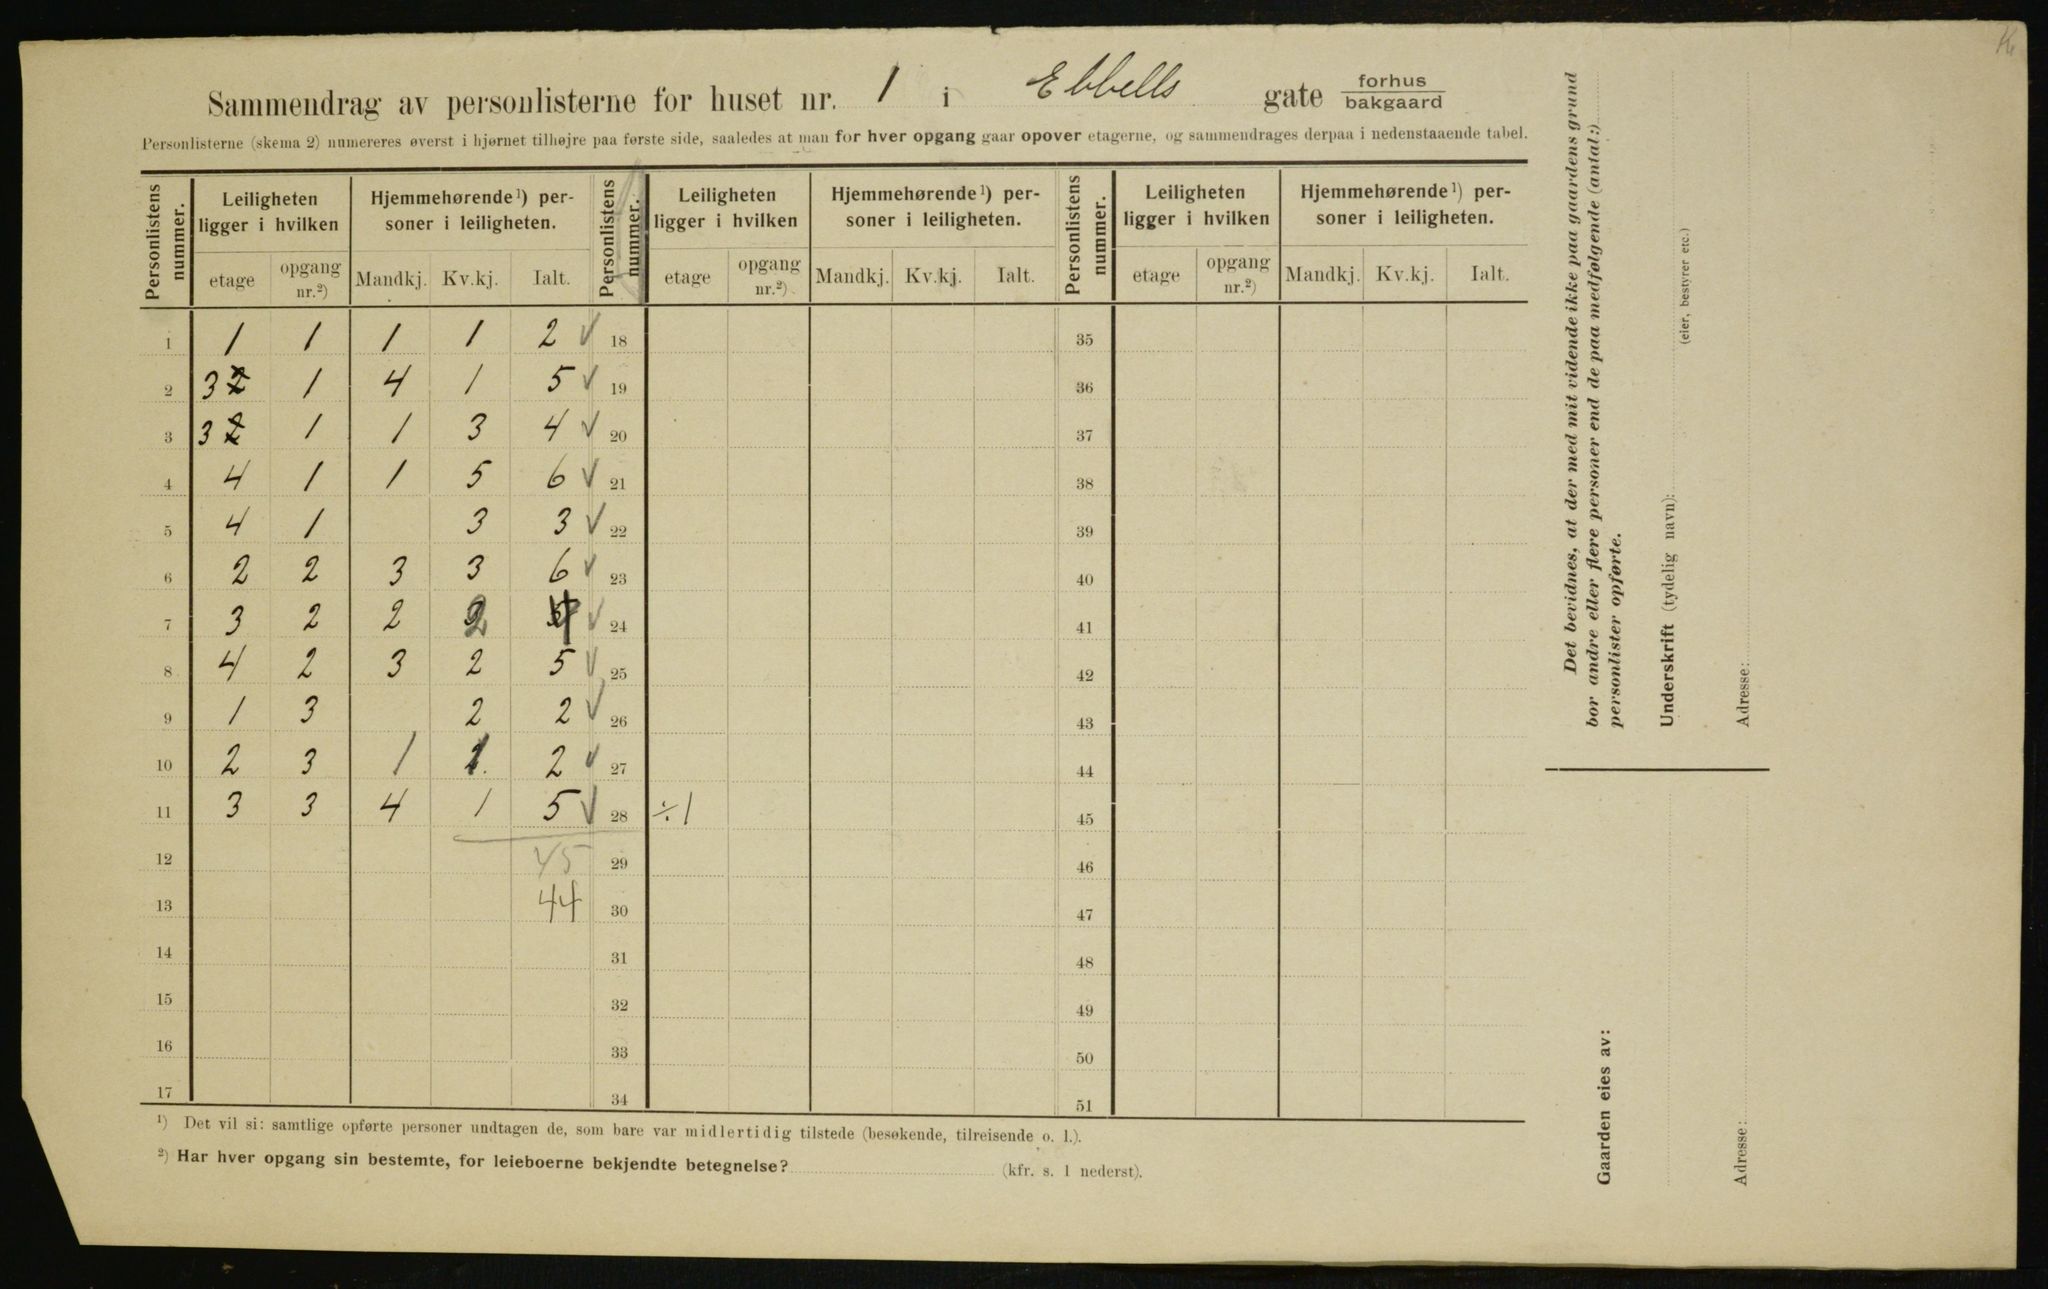 Sammendrag av personlisterne for huset nr. 1 i Ebbells gate forhus bakgaard
Personlisterne (skema 2) numereres øverst i hjørnet tilhøjre paa første side, saaledes at man for hver opgang gaar opover etagerne, og sammendrages derpaa i nedenstaaende tabel.
Personlistens nummer. Leiligheten ligger i hvilken Hjemmehørende¹) personer i leiligheten. Personlistens nummer. Leiligheten ligger i hvilken Hjemmehørende¹) personer i leiligheten. Personlistens nummer. Leiligheten ligger i hvilken Hjemmehørende¹) personer i leiligheten.
etage opgang nr.²) Mandkj. Kv.kj. Ialt. etage opgang nr.²) Mandkj. Kv.kj. Ialt. etage opgang nr.²) Mandkj. Kv.kj. Ialt.
1 1 1 1 1 2 √ 18 35
2 3 1 4 1 5 √ 19 36
3 3 1 1 3 4 √ 20 37
4 4 1 1 5 6 √ 21 38
5 4 1 3 3 √ 22 39
6 2 2 3 3 6 √ 23 40
7 3 2 2 2 4 √ 24 41
8 4 2 3 2 5 √ 25 42
9 1 3 2 2 √ 26 43
10 2 3 1 1 2 √ 27 44
11 3 3 4 1 5 √ 28 ÷1 45
12 45 29 46
13 44 30 47
14 31 48
15 32 49
16 33 50
17 34 51
¹) Det vil si: samtlige opførte personer undtagen de, som bare var midlertidig tilstede (besøkende, tilreisende o. l.).
²) Har hver opgang sin bestemte, for leieboerne bekjendte betegnelse? (kfr. s. 1 nederst).
Det bevidnes, at der med mit vidende ikke paa gaardens grund
bor andre eller flere personer end de paa medfølgende (antal:)
personlister opførte.
Underskrift (tydelig navn):
(eier, bestyrer etc.)
Adresse:
Gaarden eies av:
Adresse: